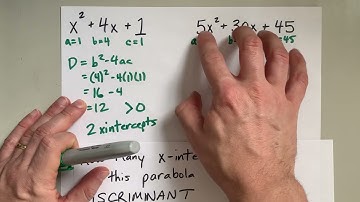 x² + 4x + 1
a=1 b=4 c=1
D = b² - 4ac
= (4)² - 4(1)(1)
= 16 - 4
= 12 > 0
2 x intercepts
5x² + 30x + 45
many x-inte
this parabola
DISCRIMINANT